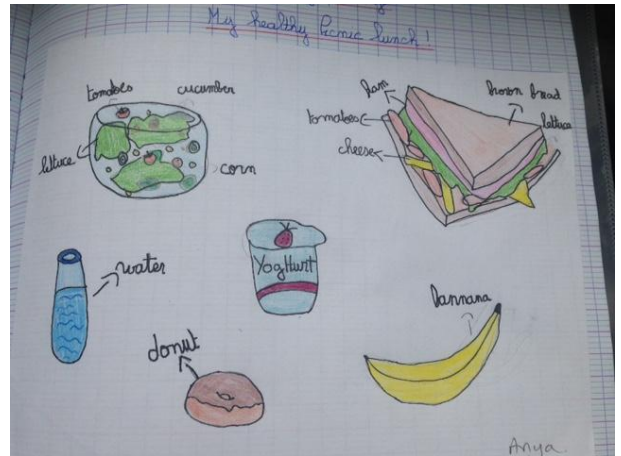 My healthy Picnic lunch!
tomatoes
cucumber
lettuce
corn
Ham
brown bread
tomatoes
lettuce
cheese
water
YogHurt
Bannana
donut
Anya